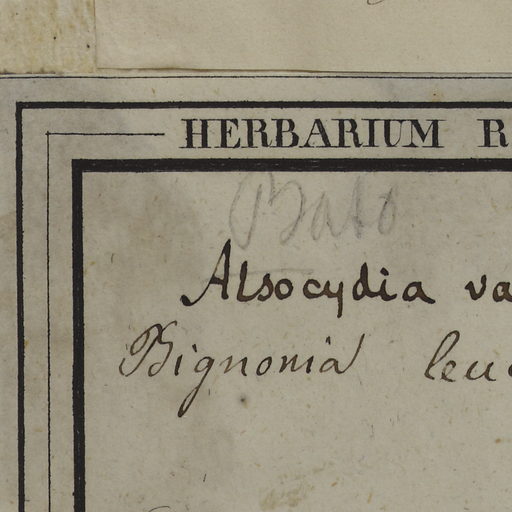 HERBARIUM R
Alsocydia va
Bignonia leu